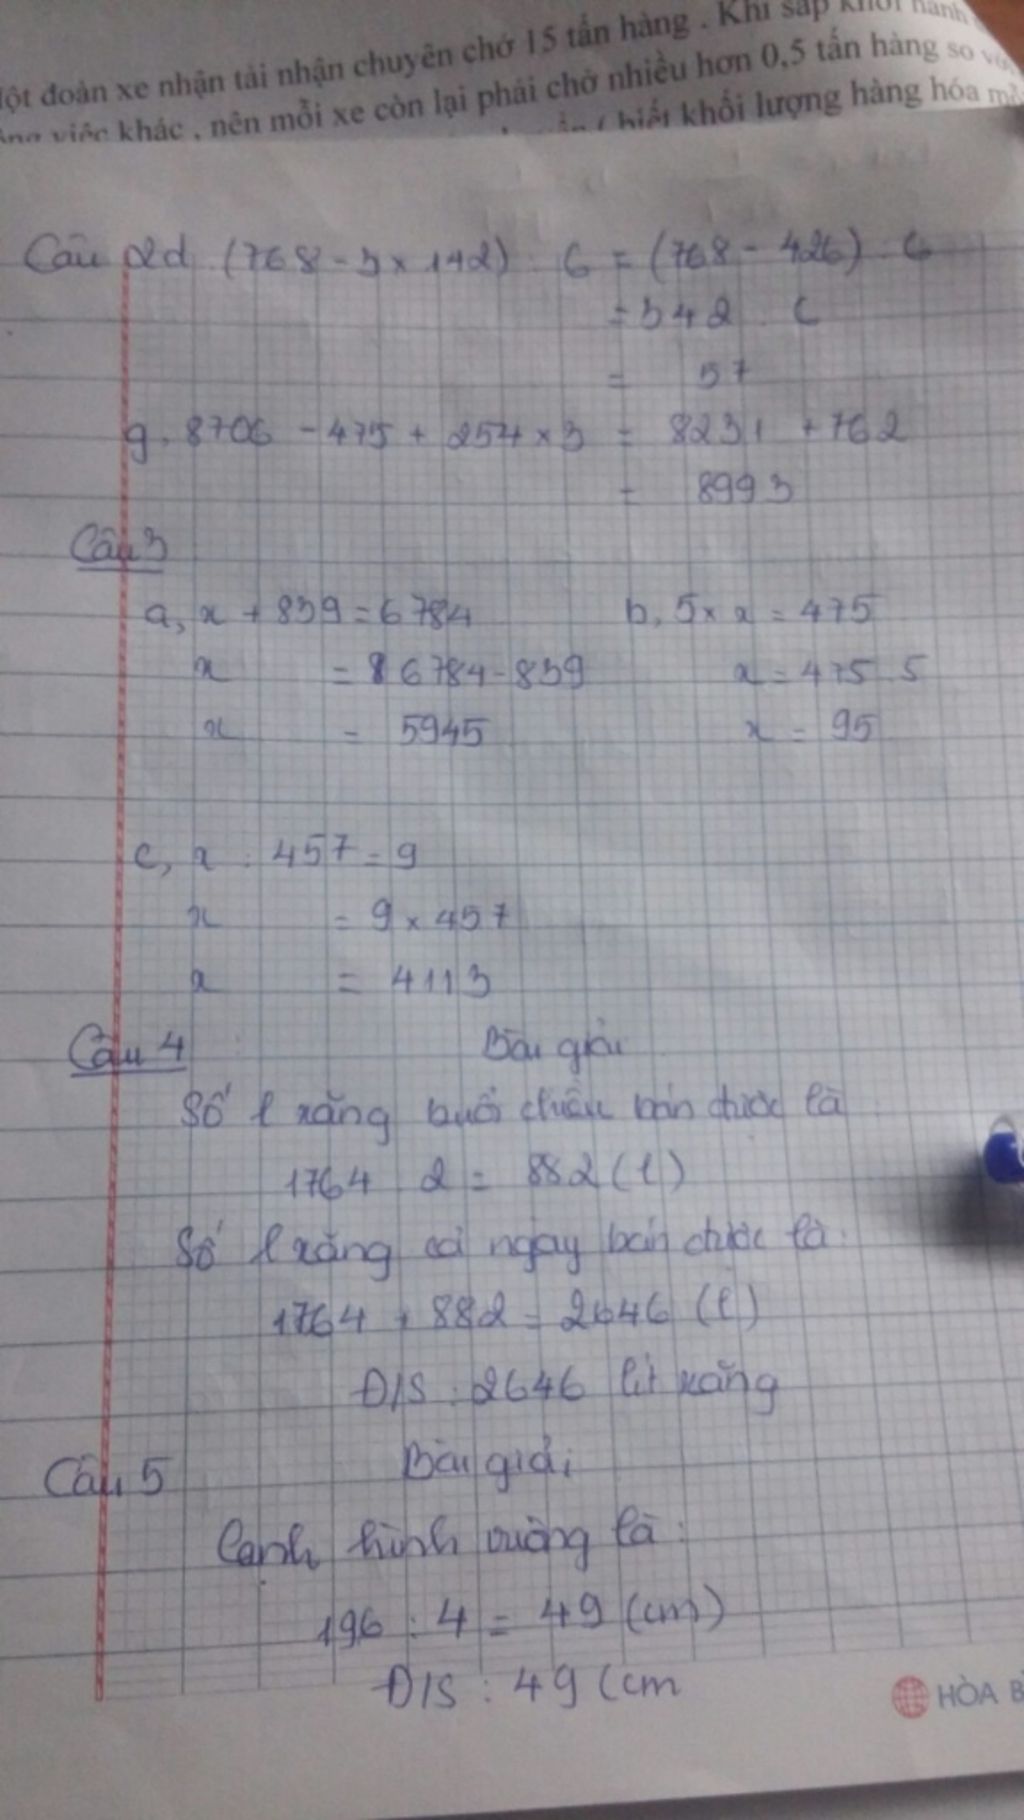 một đoàn xe nhận tải nhận chuyên chở 15 tấn hàng . Khi sắp khởi hành
việc khác , nên mỗi xe còn lại phải chở nhiều hơn 0,5 tấn hàng so với
biết khối lượng hàng hóa
Câu 2d (768 - 3 x 142) : 6 = (768 - 426) : 6
= 342 : 6
= 57
g. 8706 - 475 + 254 x 3 = 8231 + 762
= 8993
Câu 3
a, x + 839 = 6784 b, 5 x x = 475
x = 6784 - 839 x = 475 : 5
x = 5945 x = 95
c, x : 457 = 9
x = 9 x 457
x = 4113
Câu 4 Bài giải
Số l xăng buổi chiều bán được là
1764 : 2 = 882 (l)
Số l xăng cả ngày bán được là:
1764 + 882 = 2646 (l)
Đ/S : 2646 lít xăng
Câu 5 Bài giải
Cạnh hình vuông là :
196 : 4 = 49 (cm)
Đ/S : 49 (cm
HÒA B